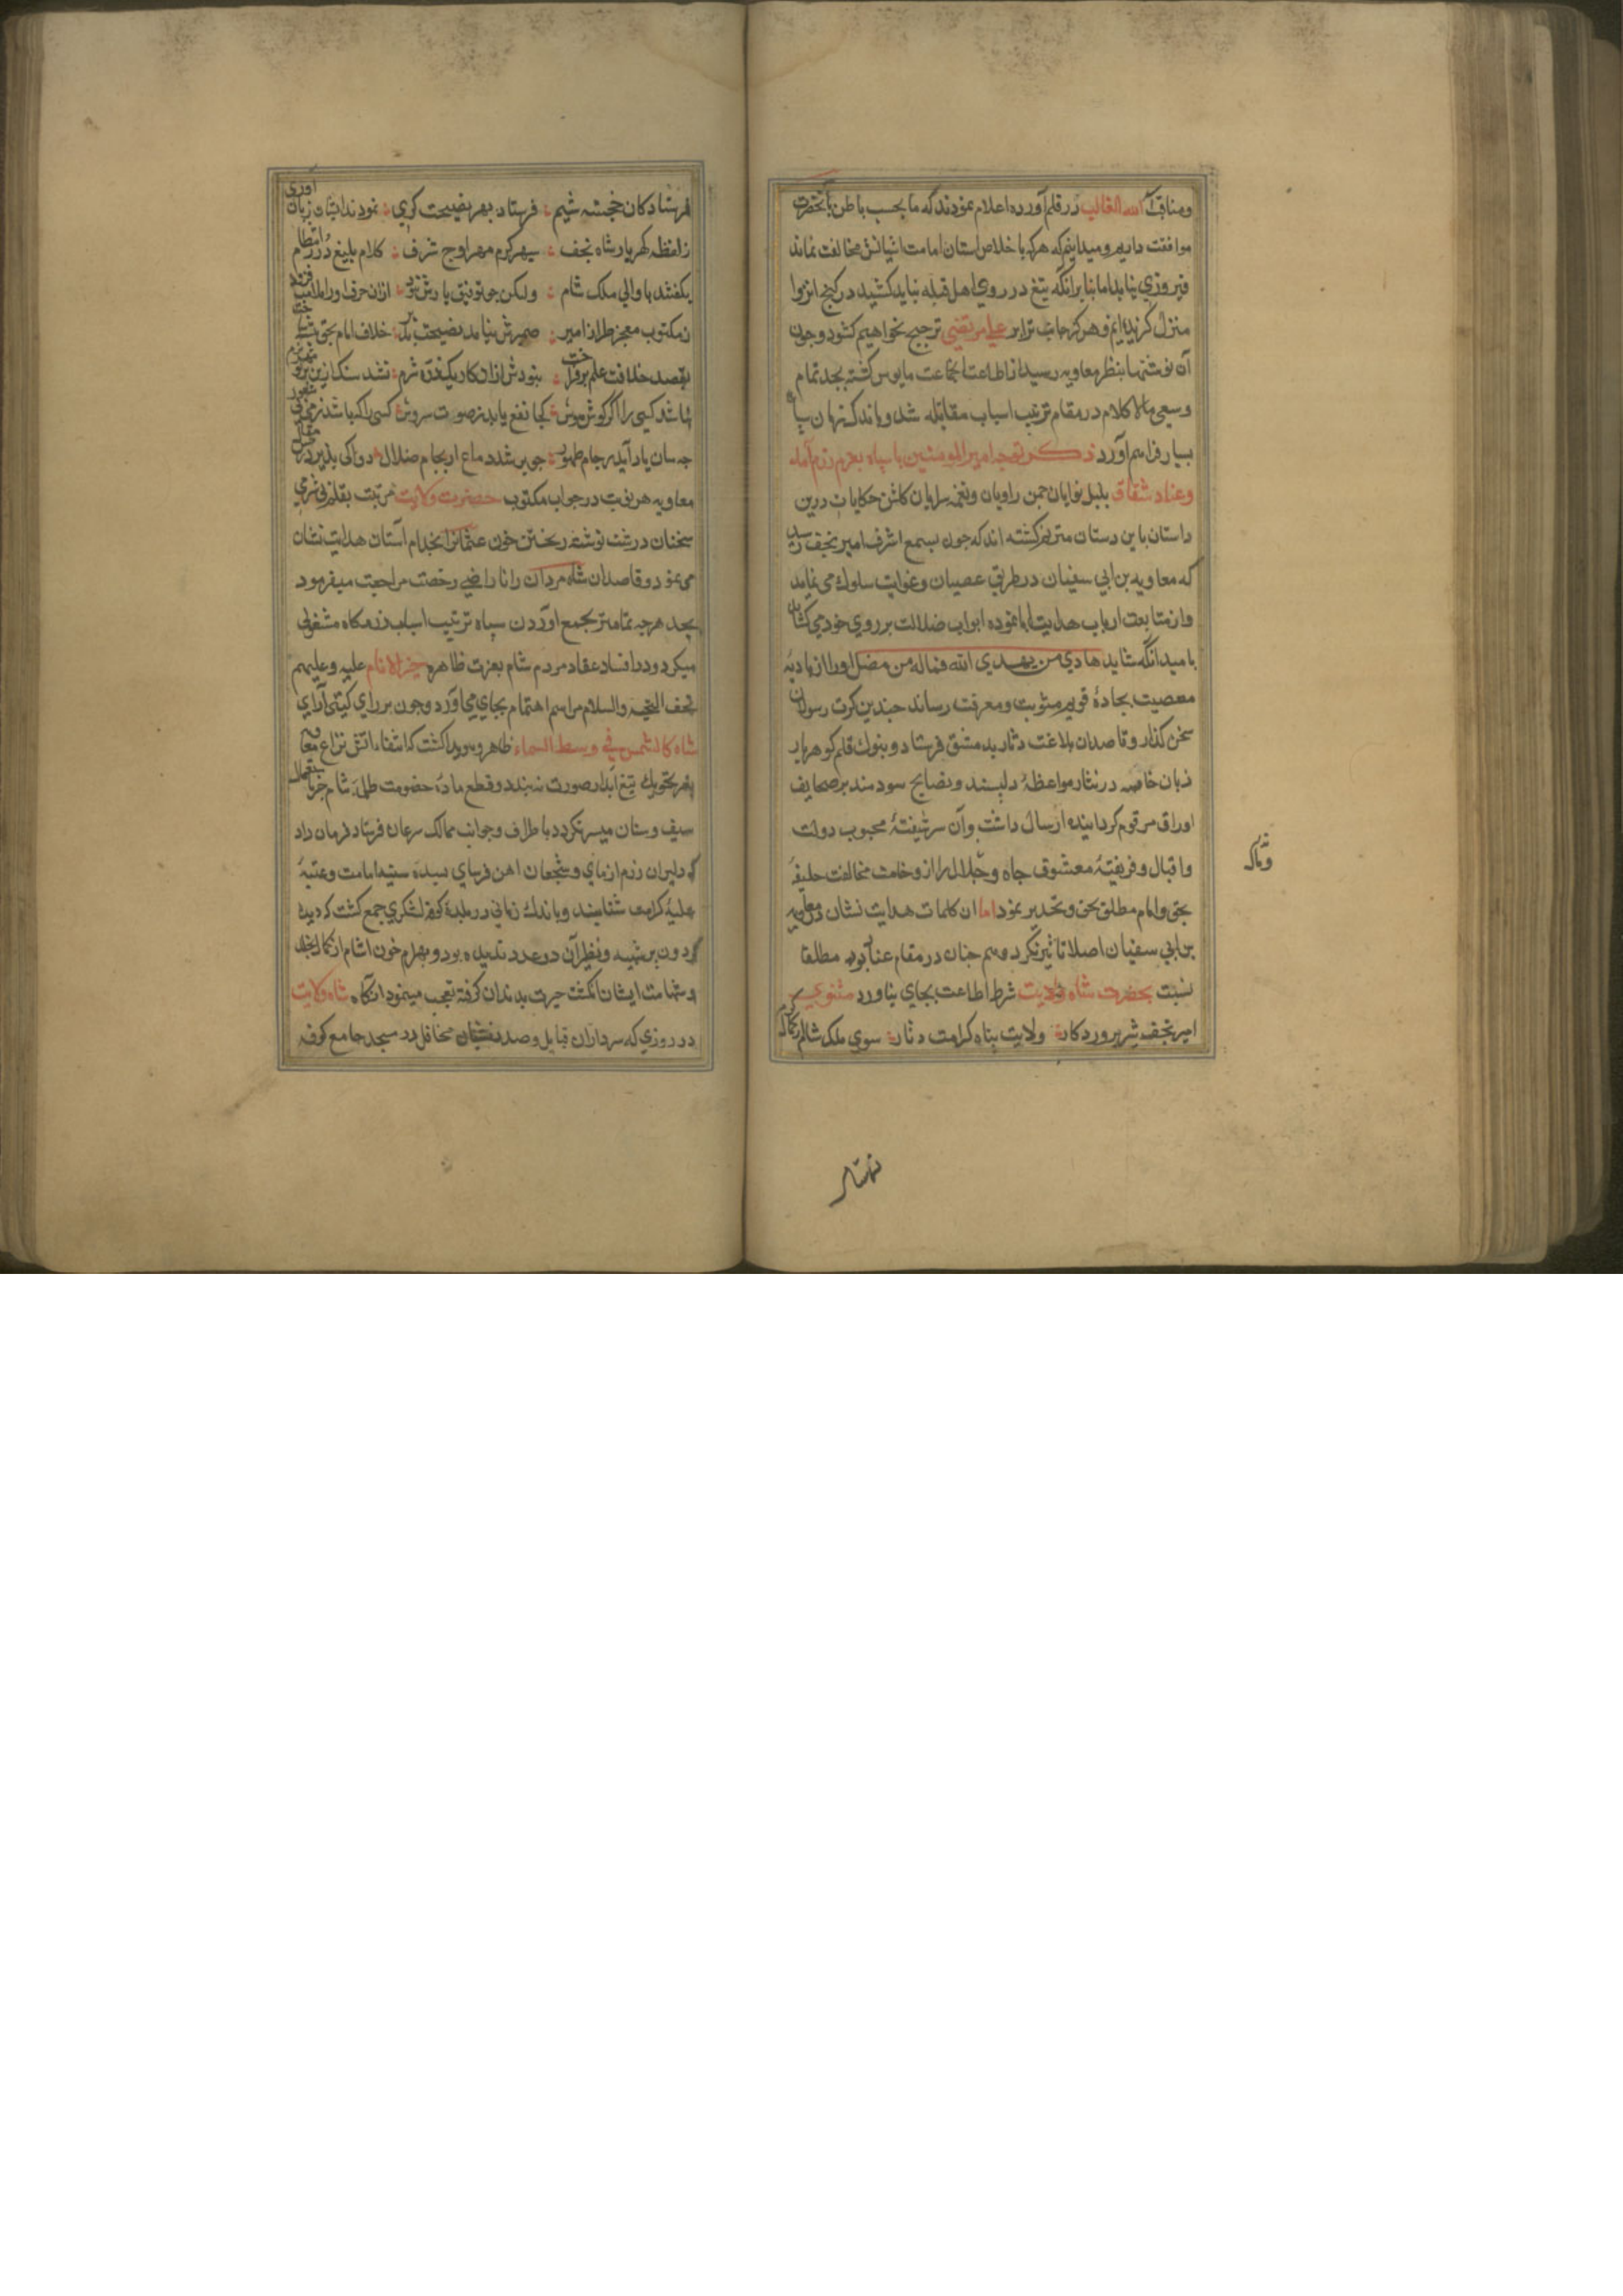 ومناقب اسد الله الغالب در قلم آورده اعلام نمودند که ما بحسب باطن بآنحضرت
موافقت داریم و میدانیم که هرکه با خلاص استان امامت اشیانش مخالفت نماید
فیروزی نیابد اما بنا برانکه تیغ در روی اهل قبله نباید کشید در کنج انزوا
منزل کزیده ایم و هرکز جانب ترا بر علی مرتضی ترجیح نخواهیم کشود و چون
آن نوشتها بنظر معاویه رسید از اطاعت جماعت مایوس کشته بجد تمام
وسعی مالا کلام در مقام ترتیب اسباب مقابله شد و باندک زمان سپاه
بسیار فراهم آورد ذکر توجه امیر المومنین با سپاه بعزم رزم اهل
وعناد شقاق بلبل نوایان چمن راویان ونغمه سرایان کلشن حکایات درین
داستان باین دستان مترنم کشته اند که چون بسمع اشرف امیر نجف رسید
که معاویه بن ابی سفیان در طریق عصیان وغوایت سلوک می نماید
واز متابعت ارباب هدایت ابا نموده ابواب ضلالت بر روی خود می کشاید
بامید انکه شاید هادی من یهدی الله فماله من مضل اورا از بادیه
معصیت بجاده قویم مثوبت ومعرفت رساند چندین کرت رسولان
سخن کذار وقاصدان بلاغت دثار بدمشق فرستاد وبنوک قلم کوهر بار
زبان خامه در نثار مواعظ دلپسند ونصایح سودمند بر صحایف
اوراق مرقوم کردانیده ارسال داشت وآن سرشیفته محبوب دولت
واقبال وفریفته معشوق جاه وجلال را از وخامت مخالفت خلیفه
بحق وامام مطلق تحذیر نمود اما ان کلمات هدایت نشان در معاویه
بن ابی سفیان اصلا تاثیر نکرد وهم چنان در مقام عناد بوده مطلقا
نسبت بحضرت شاه ولایت شرط اطاعت بجای نیاورد مثنوی
امیر نجف شیر پروردکار ولایت پناه کرامت دثار سوی ملک شام
وتاکه
فرستادکان خجسته شیم فرستاد بهر نصیحت کری نمودند اثبات زبان آوری
ز لفظ کهربار شاه نجف سپهر کرم مهر اوج شرف کلام بلیغ درر انتظام
بکفتند با والی ملک شام ولیکن چو توفیق یارش نبود ازان حرفها
ز مکتوب معجز طراز امیر ضمیرش نیامد نصیحت پذیر خلاف امام بحق
بقصد خلافت علم برفراخت نبودش ازان کار یکذره شرم نشد سنک ازین
نباشد کسی را اکر کوش هوش کجا نفع یابد ز صوت سروش کسی را که باشد
چه سان یاد آید ز جام طهور چو پر شد دماغ از جام ضلال دوا کی پذیرد
معاویه هر نوبت در جواب مکتوب حضرت ولایت مرتبت بقلم بی شرمی
سخنان درشت نوشته ریختن خون عثمانرا بخدام آستان هدایت نشان
می نمود وقاصدان شاه مردان را ناراضی رخصت مراجعت میفرمود
بجد هرچه تمامتر بجمع اوردن سپاه وترتیب اسباب رزمکاه مشغولی
میکرد ودر افساد عقاد مردم شام بعترت طاهره خیر الانام علیه وعلیهم
تحف التحیه والسلام مراسم اهتمام بجای می آورد وچون بر رای کیتی آرای
شاه کالشمس فی وسط السماء ظاهر وهویدا کشت که اطفاء اتش نزاع معاویه
بغیر تحریک تیغ ابدار صورت نه بندد وقطع ماده خصومت ظلمه شام جز باستعمال
سیف وسنان میسر نکردد باطراف وجوانب ممالک سرعان فرستاد فرمان داد
که دلیران رزم ازمای وشجعان اهن فرسای بسده سنیه امامت وعتبه
علیه کرامت شتابند وباندک زمانی در بلده کوفه لشکری جمع کشت که دیده
کردون بر شبیه ونظیر آن در عدد ندیده بود وبهرام خون اشام از کمال جلد
وشهامت ایشان انکشت حیرت بدندان کرفته تعجب مینمود انکاه شاه ولایت
در روزی که سرداران قبایل وصدرنشینان محافل در مسجد جامع کوفه